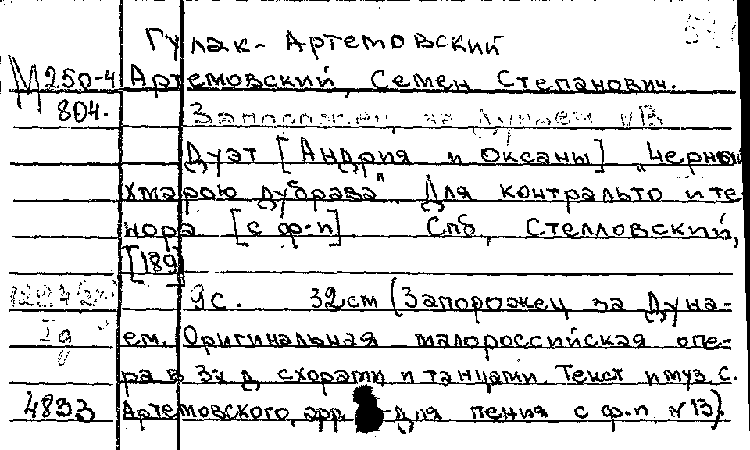 Гулак-Артемовский
М 250-4 Артемовский, Семен Степанович.
804. Запорожец за Дунаем
Дуэт [Андрия и Оксаны] „Черною
хмарою дубрава". Для контральто и те
нора [с ф-п]. Спб, Стелловский,
[189]
9с. 32см (Запорожец за Дуна-
ем. Оригинальная малороссийская опе-
ра в 3х д. с хорами и танцами. Текст и муз. С.
4833 Артемовского, арр для пения с ф.п №13).